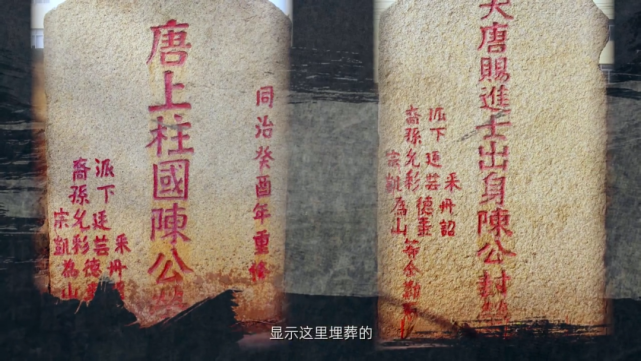 同治癸酉年重修
唐上柱國陳公
派下
裔孫允彩
宗凱為山
廷芸德
采丹
大唐賜進士出身陳公封
派下
裔孫允彩
宗凱為山
廷芸德垂
采丹韶
显示这里埋葬的